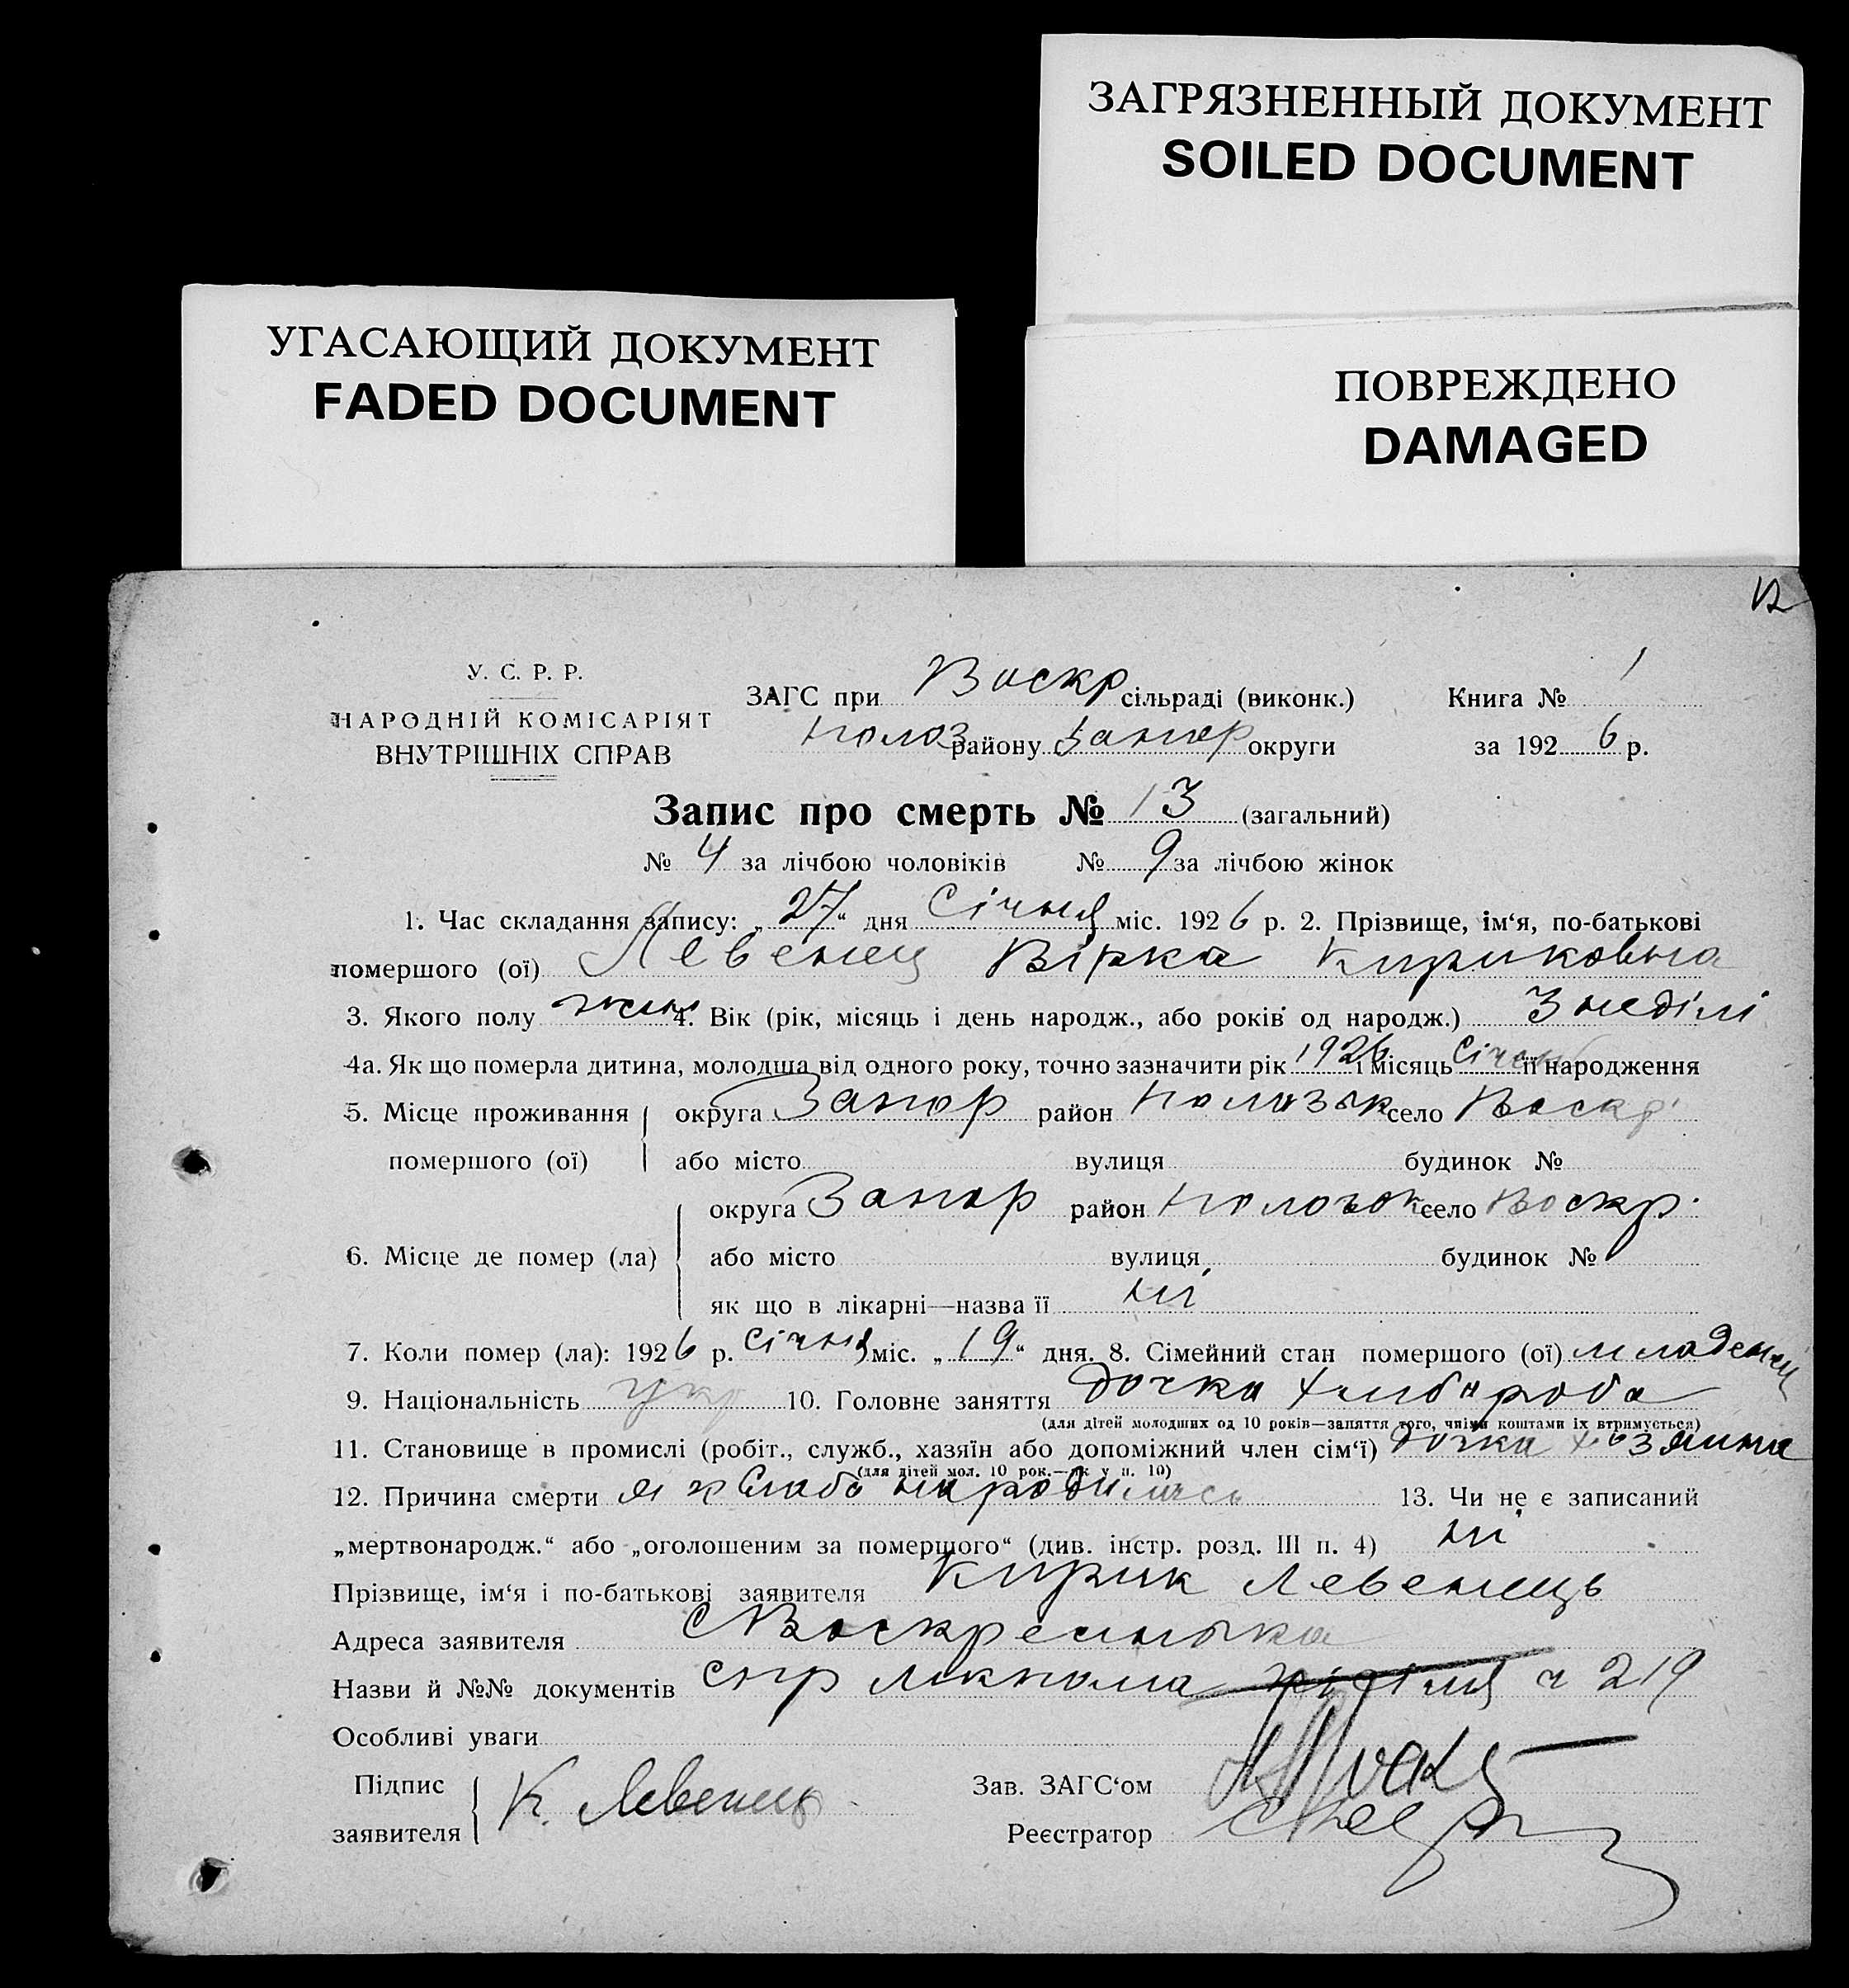 ЗАГРЯЗНЕННЫЙ ДОКУМЕНТ
SOILED DOCUMENT
УГАСАЮЩИЙ ДОКУМЕНТ
FADED DOCUMENT
ПОВРЕЖДЕНО
DAMAGED
12
У. С. Р. Р.
НАРОДНІЙ КОМІСАРІЯТ
ВНУТРІШНІХ СПРАВ
ЗАГС при Воскр сільраді (виконк.) Книга № 1
Полоз району Запор округи за 1926 р.
Запис про смерть № 13 (загальний)
№ 4 за лічбою чоловіків № 9 за лічбою жінок
1. Час складання запису: „27“ дня Січня міс. 1926 р. 2. Прізвище, ім‘я, по-батькові
помершого (ої) Левенец Вірка Кириковна
3. Якого полу жін 4. Вік (рік, місяць і день народж., або років од народж.) 3 неділі
4а. Як що померла дитина, молодша від одного року, точно зазначити рік 1926 і місяць Січень її народження
5. Місце проживання округа Запор район Полозьк село Воскр
помершого (ої) або місто вулиця будинок №
округа Запор район Пологок село Воскр.
6. Місце де помер (ла) або місто вулиця будинок №
як що в лікарні—назва її ні
7. Коли помер (ла): 1926 р. січня міс. „19“ дня. 8. Сімейний стан помершого (ої) младенец
9. Національність укр 10. Головне заняття дочка хлибороба
(для дітей молодших од 10 років—заняття того, чиїми коштами їх втримується)
11. Становище в промислі (робіт., служб., хазяїн або допоміжний член сім‘ї) дочка хозяина
(для дітей мол. 10 рок.—як у п. 10)
12. Причина смерти слабо народилась 13. Чи не є записаний
„мертвонародж.“ або „оголошеним за померщого“ (див. інстр. розд. III п. 4) ні
Прізвище, ім‘я і по-батькові заявителя Кирик Левенець
Адреса заявителя с Воскресенька
Назви й №№ документів спр лікпома ч 219
Особливі уваги
Підпис Зав. ЗАГС‘ом
К. Левенець
заявителя Реєстратор